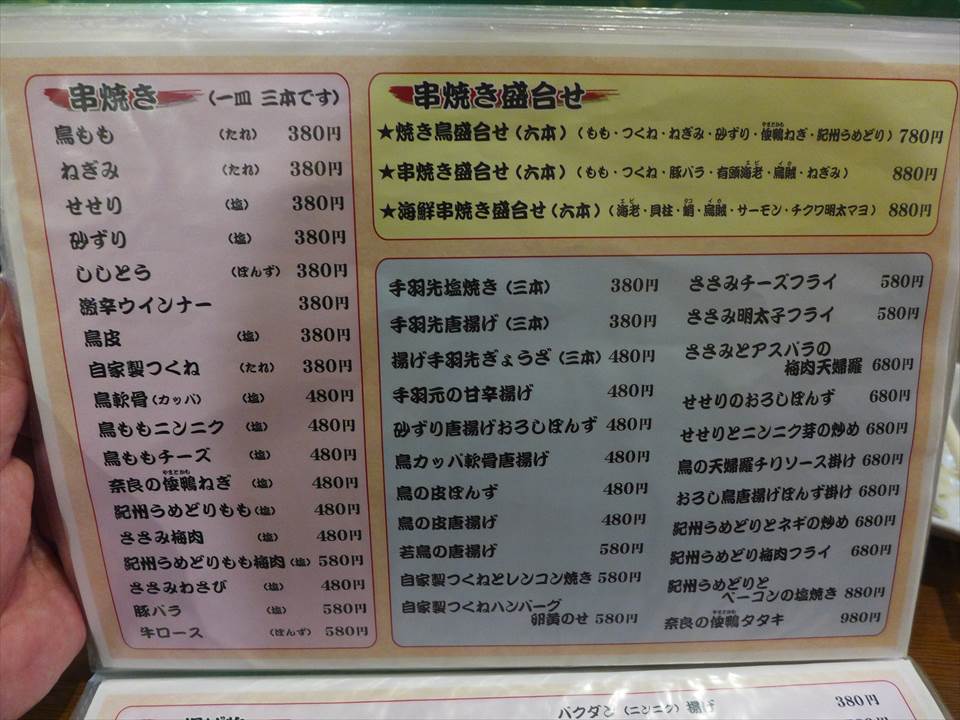 串焼き （一皿 三本です）
鳥もも （たれ） 380円
ねぎみ （たれ） 380円
せせり （塩） 380円
砂ずり （塩） 380円
ししとう （ぽんず） 380円
激辛ウインナー 380円
鳥皮 （塩） 380円
自家製つくね （たれ） 380円
鳥軟骨（カッパ） （塩） 480円
鳥ももニンニク （塩） 480円
鳥ももチーズ （塩） 480円
奈良の倭鴨ねぎ （塩） 480円
紀州うめどりもも（塩） 480円
ささみ梅肉 （塩） 480円
紀州うめどりもも梅肉（塩） 580円
ささみわさび （塩） 480円
豚バラ （塩） 580円
牛ロース （ぽんず） 580円
串焼き盛合せ
★焼き鳥盛合せ（六本）（もも・つくね・ねぎみ・砂ずり・倭鴨ねぎ・紀州うめどり） 780円
★串焼き盛合せ（六本）（もも・つくね・豚バラ・有頭海老・烏賊・ねぎみ） 880円
★海鮮串焼き盛合せ（六本）（海老・貝柱・蛸・烏賊・サーモン・チクワ明太マヨ） 880円
手羽先塩焼き（三本） 380円
手羽先唐揚げ（三本） 380円
揚げ手羽先ぎょうざ（三本） 480円
手羽元の甘辛揚げ 480円
砂ずり唐揚げおろしぽんず 480円
鳥カッパ軟骨唐揚げ 480円
鳥の皮ぽんず 480円
鳥の皮唐揚げ 480円
若鳥の唐揚げ 580円
自家製つくねとレンコン焼き 580円
自家製つくねハンバーグ
卵黄のせ 580円
ささみチーズフライ 580円
ささみ明太子フライ 580円
ささみとアスパラの
梅肉天婦羅 680円
せせりのおろしぽんず 680円
せせりとニンニク芽の炒め 680円
鳥の天婦羅チリソース掛け 680円
おろし鳥唐揚げぽんず掛け 680円
紀州うめどりとネギの炒め 680円
紀州うめどり梅肉フライ 680円
紀州うめどりと
ベーコンの塩焼き 880円
奈良の倭鴨タタキ 980円
バクダン（ニンニク）揚げ 380円